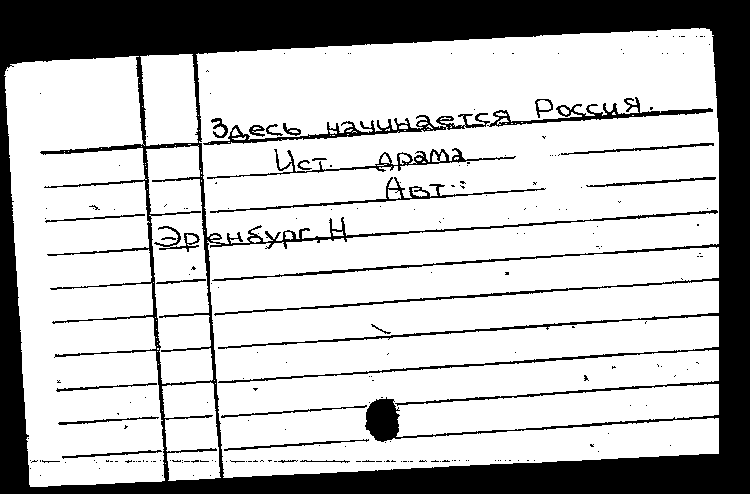 Здесь начинается Россия.
Ист. драма
Авт.:
Эренбург, Н